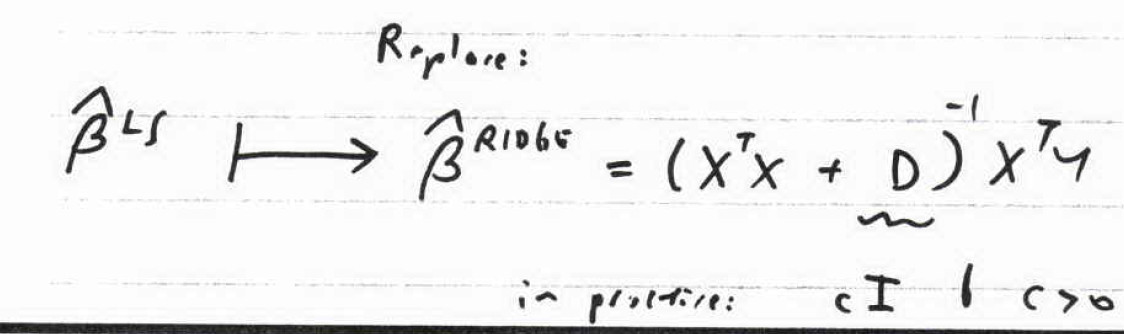 Replace:
β̂^LS ⟼ β̂^RIDGE = (X^T X + D)^-1 X^T y
in practice: cI , c>0